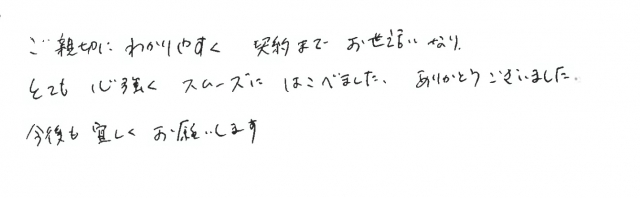 ご親切にわかりやすく 契約まで お世話になり、
とても 心強く スムーズに はこべました。 ありがとうございました。
今後も 宜しく お願いします